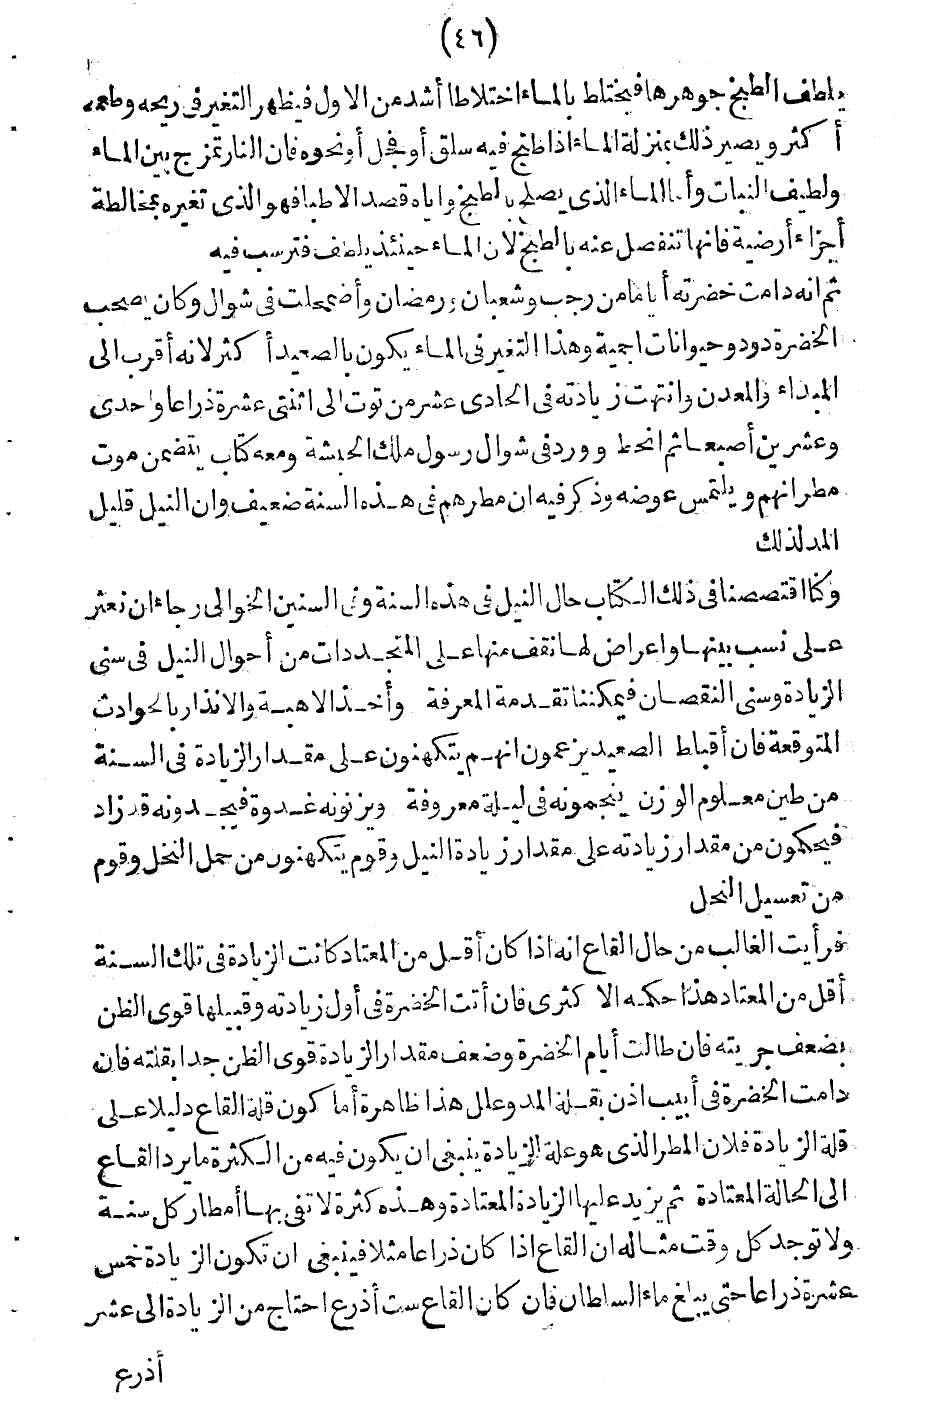 (٤٦)
يلطف الطبخ جوهرها فيختلط بالماء اختلاطا أشد من الاول فيظهر التغير فى ريحه وطعمه
أكثر ويصير ذلك بمنزلة الماء اذا طبخ فيه سلق أو فجل أو نحوه فان النار تمزج بين الماء
ولطيف النبات وأما الماء الذى يصلح بالطبخ واياه قصد الاطباء فهو الذى تغيره بمخالطة
أجزاء أرضية فانها تنفصل عنه بالطبخ لان الماء حينئذ يلطف فترسب فيه
ثم انه دامت خضرته أياما من رجب وشعبان ورمضان واضمحلت فى شوال وكان يصحب
الخضرة دود وحيوانات اجمية وهذا التغير فى الماء يكون بالصعيد أكثر لانه أقرب الى
المبداء والمعدن وانتهت زيادته فى الحادى عشر من توت الى اثنتى عشرة ذراعا واحدى
وعشرين أصبعا ثم انحط وورد فى شوال رسول ملك الحبشة ومعه كتاب يتضمن موت
مطرانهم ويلتمس عوضه وذكر فيه ان مطرهم فى هذه السنة ضعيف وان النيل قليل
المد لذلك
وكنا اقتصصنا فى ذلك الكتاب حال النيل فى هذه السنة وفى السنين الخوالى رجاء ان نعثر
على نسب بينها واعراض لها نقف منها على المتجددات من أحوال النيل فى سنى
الزيادة وسنى النقصان فيمكننا تقدمة المعرفة وأخذ الاهبة والانذار بالحوادث
المتوقعة فان أقباط الصعيد يزعمون انهم يتكهنون على مقدار الزيادة فى السنة
من طين معلوم الوزن ينجمونه فى ليلة معروفة ويزنونه غدوة فيجدونه قد زاد
فيحكمون من مقدار زيادته على مقدار زيادة النيل وقوم يتكهنون من حمل النخل وقوم
من تعسيل النحل
فرأيت الغالب من حال القاع انه اذا كان أقل من المعتاد كانت الزيادة فى تلك السنة
أقل من المعتاد هذا حكمه الاكثرى فان أتت الخضرة فى أول زيادته وقبيلها قوى الظن
بضعف جريته فان طالت أيام الخضرة وضعف مقدار الزيادة قوى الظن جدا بقلته فان
دامت الخضرة فى أبيب اذن بقلة المد وعلل هذا ظاهرة أما كون قلة القاع دليلا على
قلة الزيادة فلان المطر الذى هو علة الزيادة ينبغى ان يكون فيه من الكثرة ما يرد القاع
الى الحالة المعتادة ثم يزيد عليها الزيادة المعتادة وهذه كثرة لا تفى بها أمطار كل سنة
ولا توجد كل وقت مثاله ان القاع اذا كان ذراعا مثلا فينبغى ان تكون الزيادة خمس
عشرة ذراعا حتى يبلغ ماء السلطان فان كان القاع ست أذرع احتاج من الزيادة الى عشر
أذرع